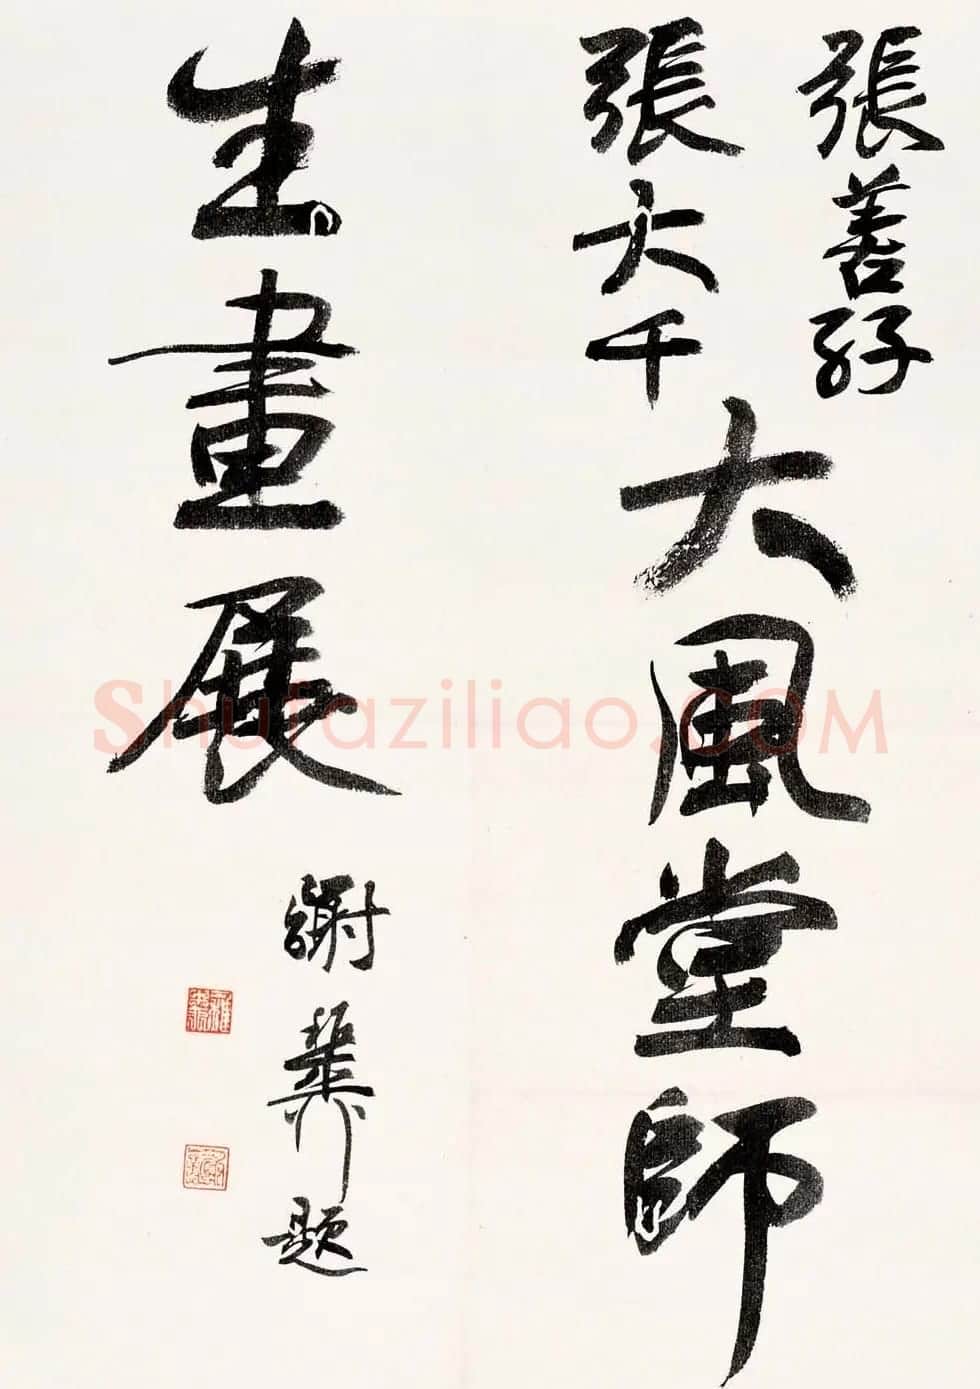 張善孖
張大千
大風堂師
生畫展
謝稚柳題
Shufaziliao.COM